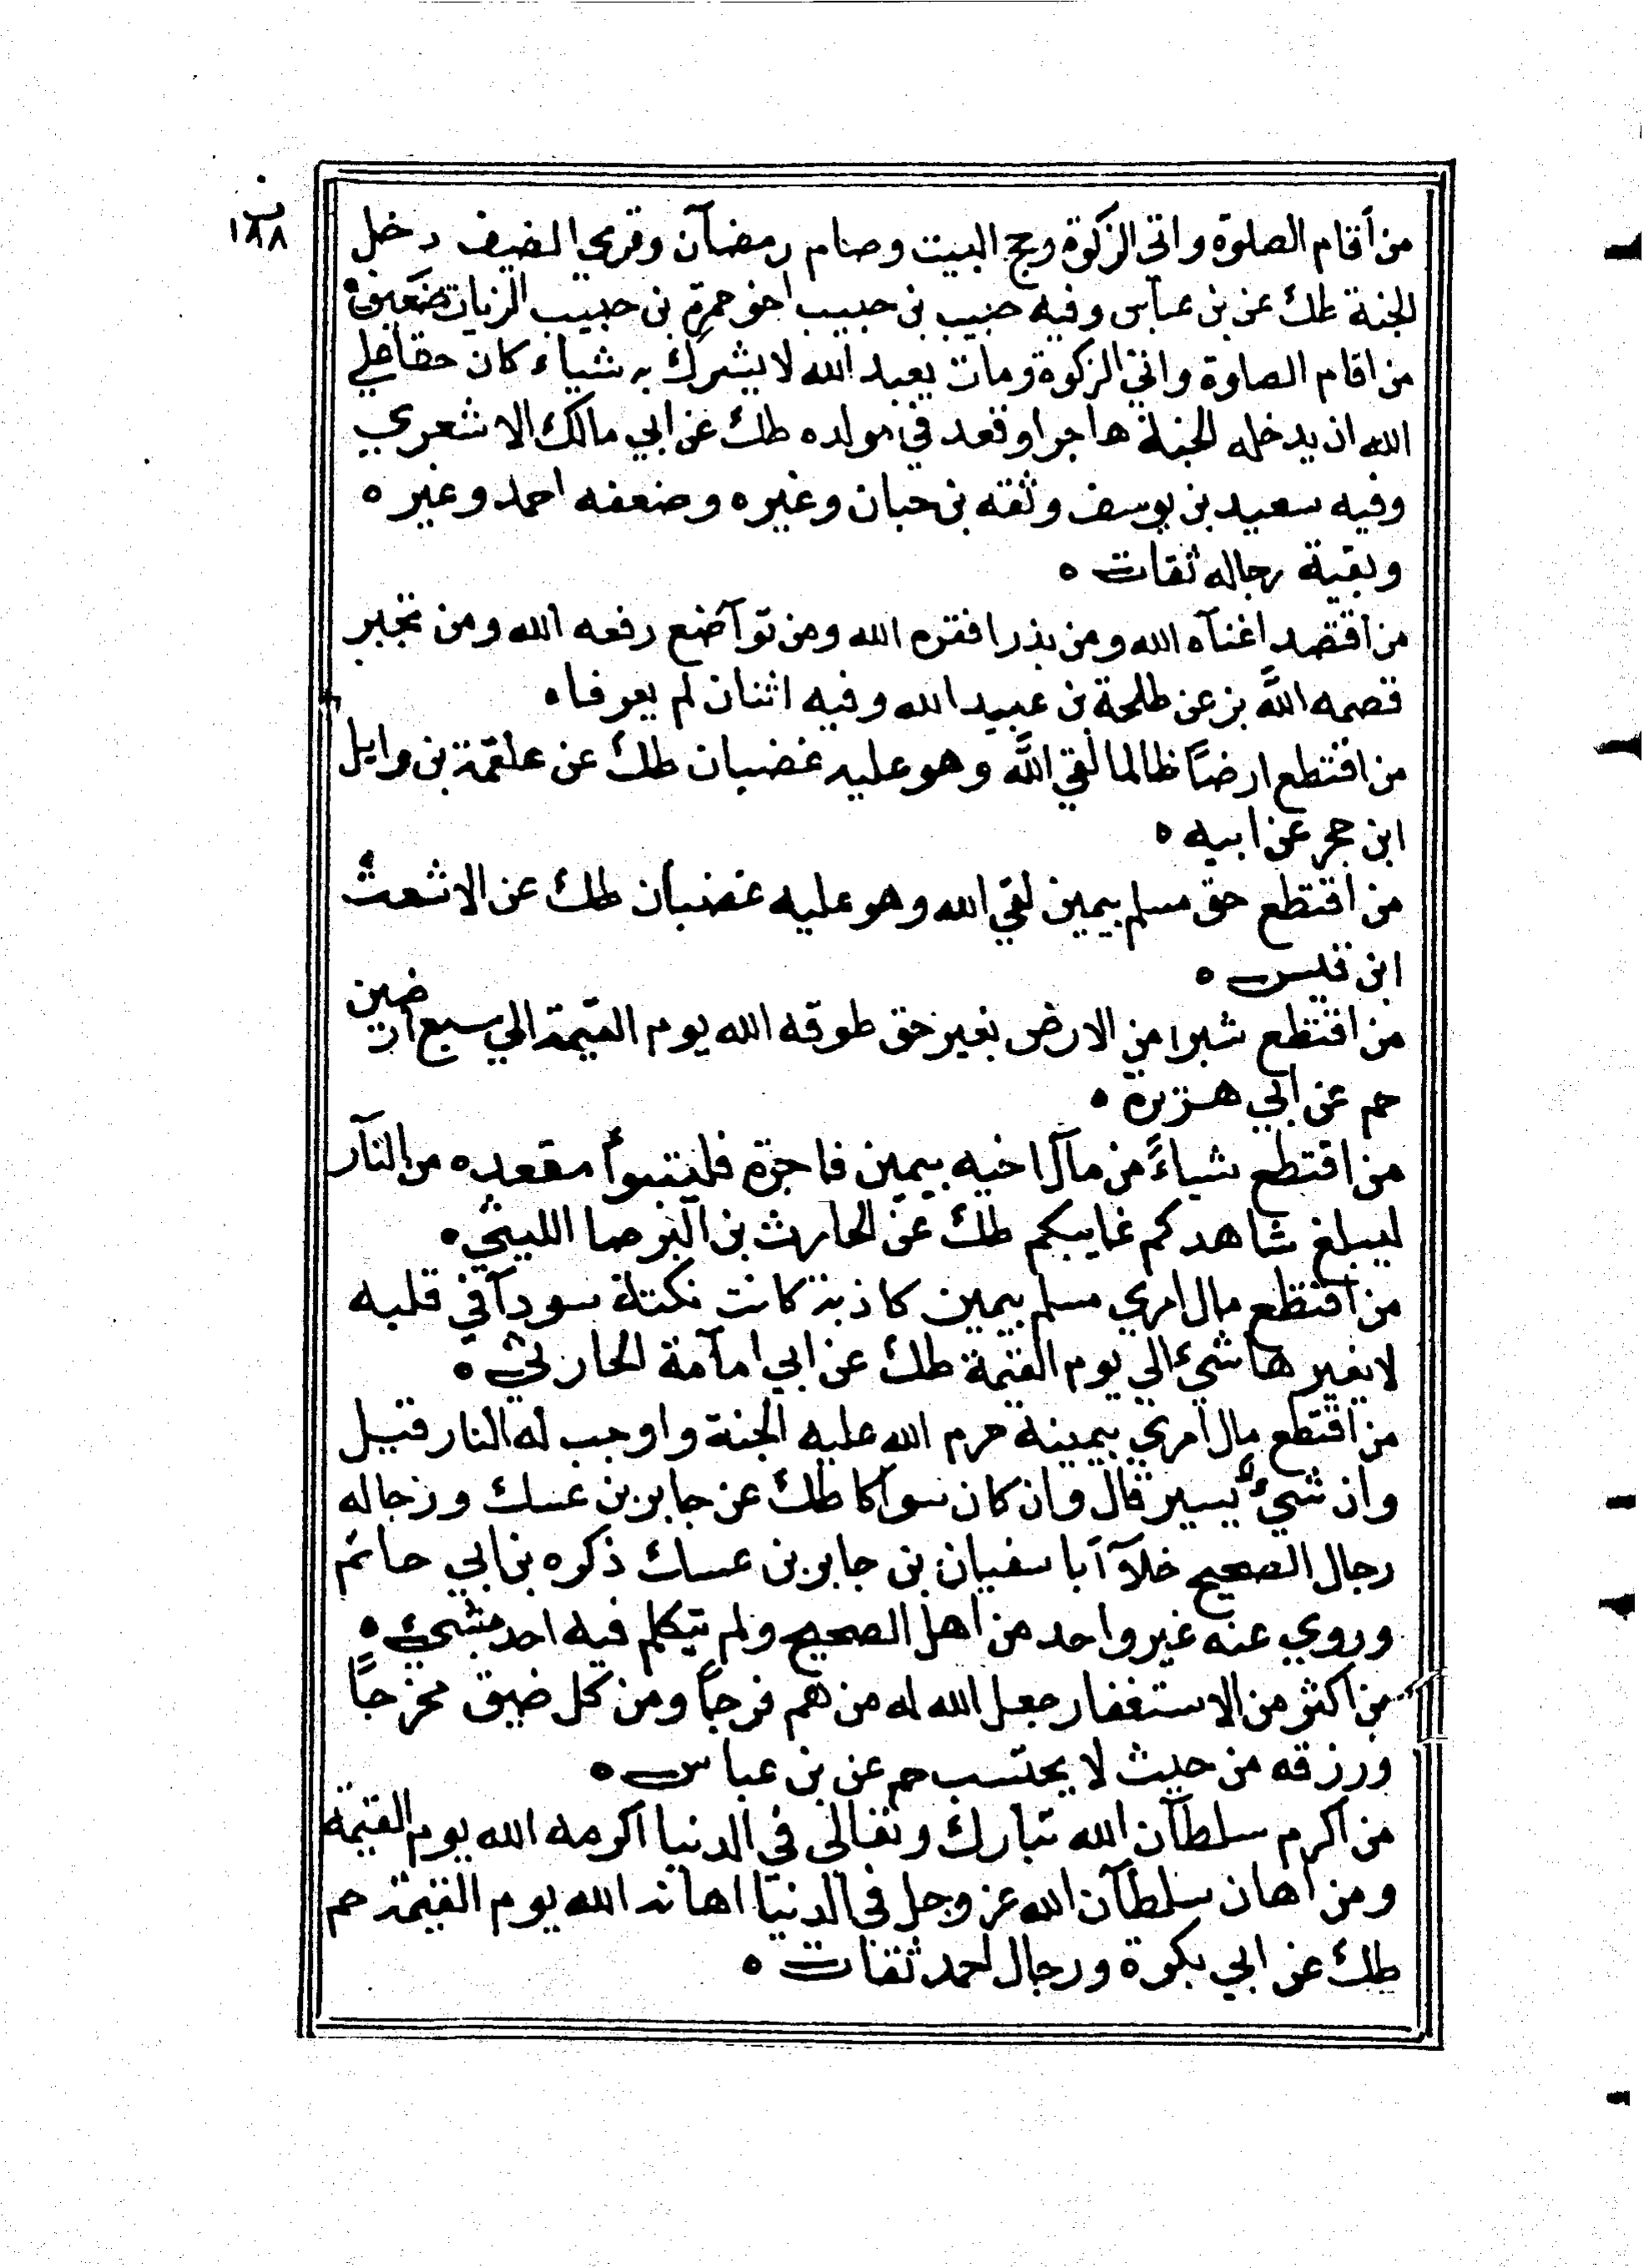 ب
١٨٨
من أقام الصلوة واتى الزكوة وحج البيت وصام رمضآن وقري الضيف دخل
الجنة طك عن بن عباس وفيه حبيب بن حبيب اخو حمزة بن حبيب الزيات ضعيف ه
من اقام الصلوة واتي الزكوة ومات يعبد الله لا يشرك به شياء كان حقا علي
الله ان يدخله الجنة هاجر او قعد في مولده طك عن ابي مالك الاشعري
وفيه سعيد بن يوسف وثقه بن حبان وغيره وضعفه احمد وغيره
وبقية رجاله ثقات ه
من اقتصد اغنآه الله ومن بذر افقره الله ومن توآضع رفعه الله ومن تجبر
قصمه الله بز عن طلحة بن عبيد الله وفيه اثنان لم يعرفا ه
من اقتطع ارضًا ظالما لقي الله وهو عليه غضبان طك عن علقمة بن وايل
ابن حجر عن ابيه ه
من اقتطع حق مسلم بيمين لقي الله وهو عليه غضبان طك عن الاشعث
ابن قيس ه
من اقتطع شبرا من الارض بغير حق طوقه الله يوم القيمة الي سبع ارضين
حم عن ابي هريرة ه
من اقتطع شياءً من مآل اخيه بيمين فاجرة فليتبوأ مقعده من النآر
ليبلغ شاهدكم غايبكم طك عن الحارث بن البرصا الليثي ه
من اقتطع مال امري مسلم بيمين كاذبة كانت نكتة سودآ في قلبه
لا يغيرها شيء الي يوم القيمة طك عن ابي امآمة الحارثي ه
من اقتطع مال امري بيمينه حرم الله عليه الجنة واوجب له النار قيل
وان شيء يسير قال وان كان سوآكا طك عن جابر بن عتيك ورجاله
رجال الصحيح خلآ أبا سفيان بن جابر بن عتيك ذكره بن ابي حاتم
وروي عنه غير واحد من اهل الصحيح ولم يتكلم فيه احد بشيء ه
من اكثر من الاستغفار جعل الله له من هم فرجاً ومن كل ضيق مخرجاً
ورزقه من حيث لا يحتسب حم عن بن عباس ه
من اكرم سلطآن الله تبارك وتعالى في الدنيا اكرمه الله يوم القيمة
ومن اهان سلطآن الله عز وجل في الدنيا اهانه الله يوم القيمة حم
طك عن ابي بكرة ورجال احمد ثقات ه